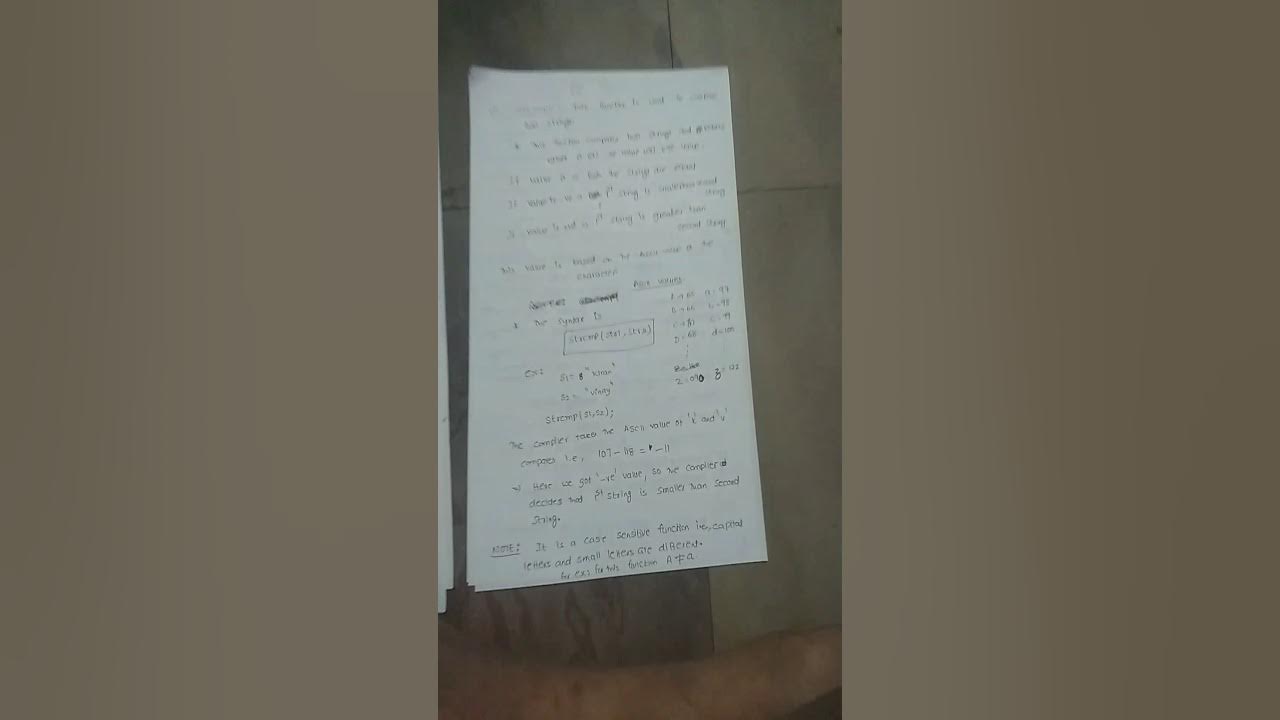 This function is used to compare
two strings.
* This function compares two strings and returns
value
If value is 0 both the strings are equal
If value is -ve 1st string is smaller than second
string
If value is +ve 1st string is greater than
second string
This value is based on the ASCII value of the
character
ASCII values
A → 65 a = 97
B → 66 b = 98
C → c = 99
D = 68 d = 100
Z = 90 z = 122
* The syntax is
strcmp(str1, str2)
ex: s1 = "kiran"
s2 = "vinay"
strcmp(s1,s2);
The complier takes the ASCII value of 'k' and 'v'
compares i.e, 107 - 118 = -11
→ Here we got '-ve' value, so the complier
decides that 1st string is smaller than second
string.
NOTE: It is a case sensitive function i.e, capital
letters and small letters are different.
for ex: for this function A ≠ a